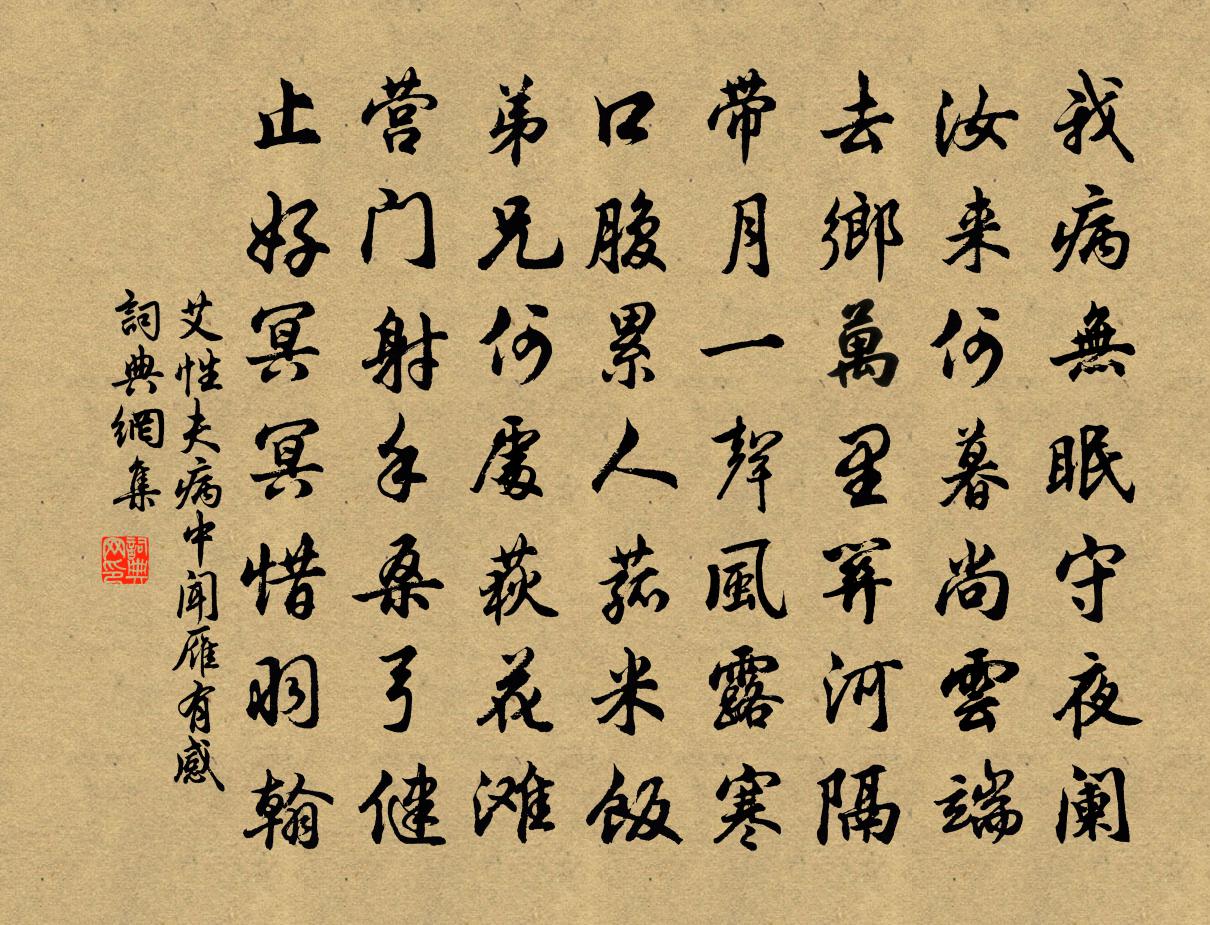 我病無眠守夜阑
汝来何暮尚雲端
去鄉萬里關河隔
带月一聲風露寒
口腹累人菰米飯
弟兄何處荻花滩
营门射手桑弓健
止好冥冥惜羽翰
艾性夫病中闻雁有感
詞典網集
詞典网印